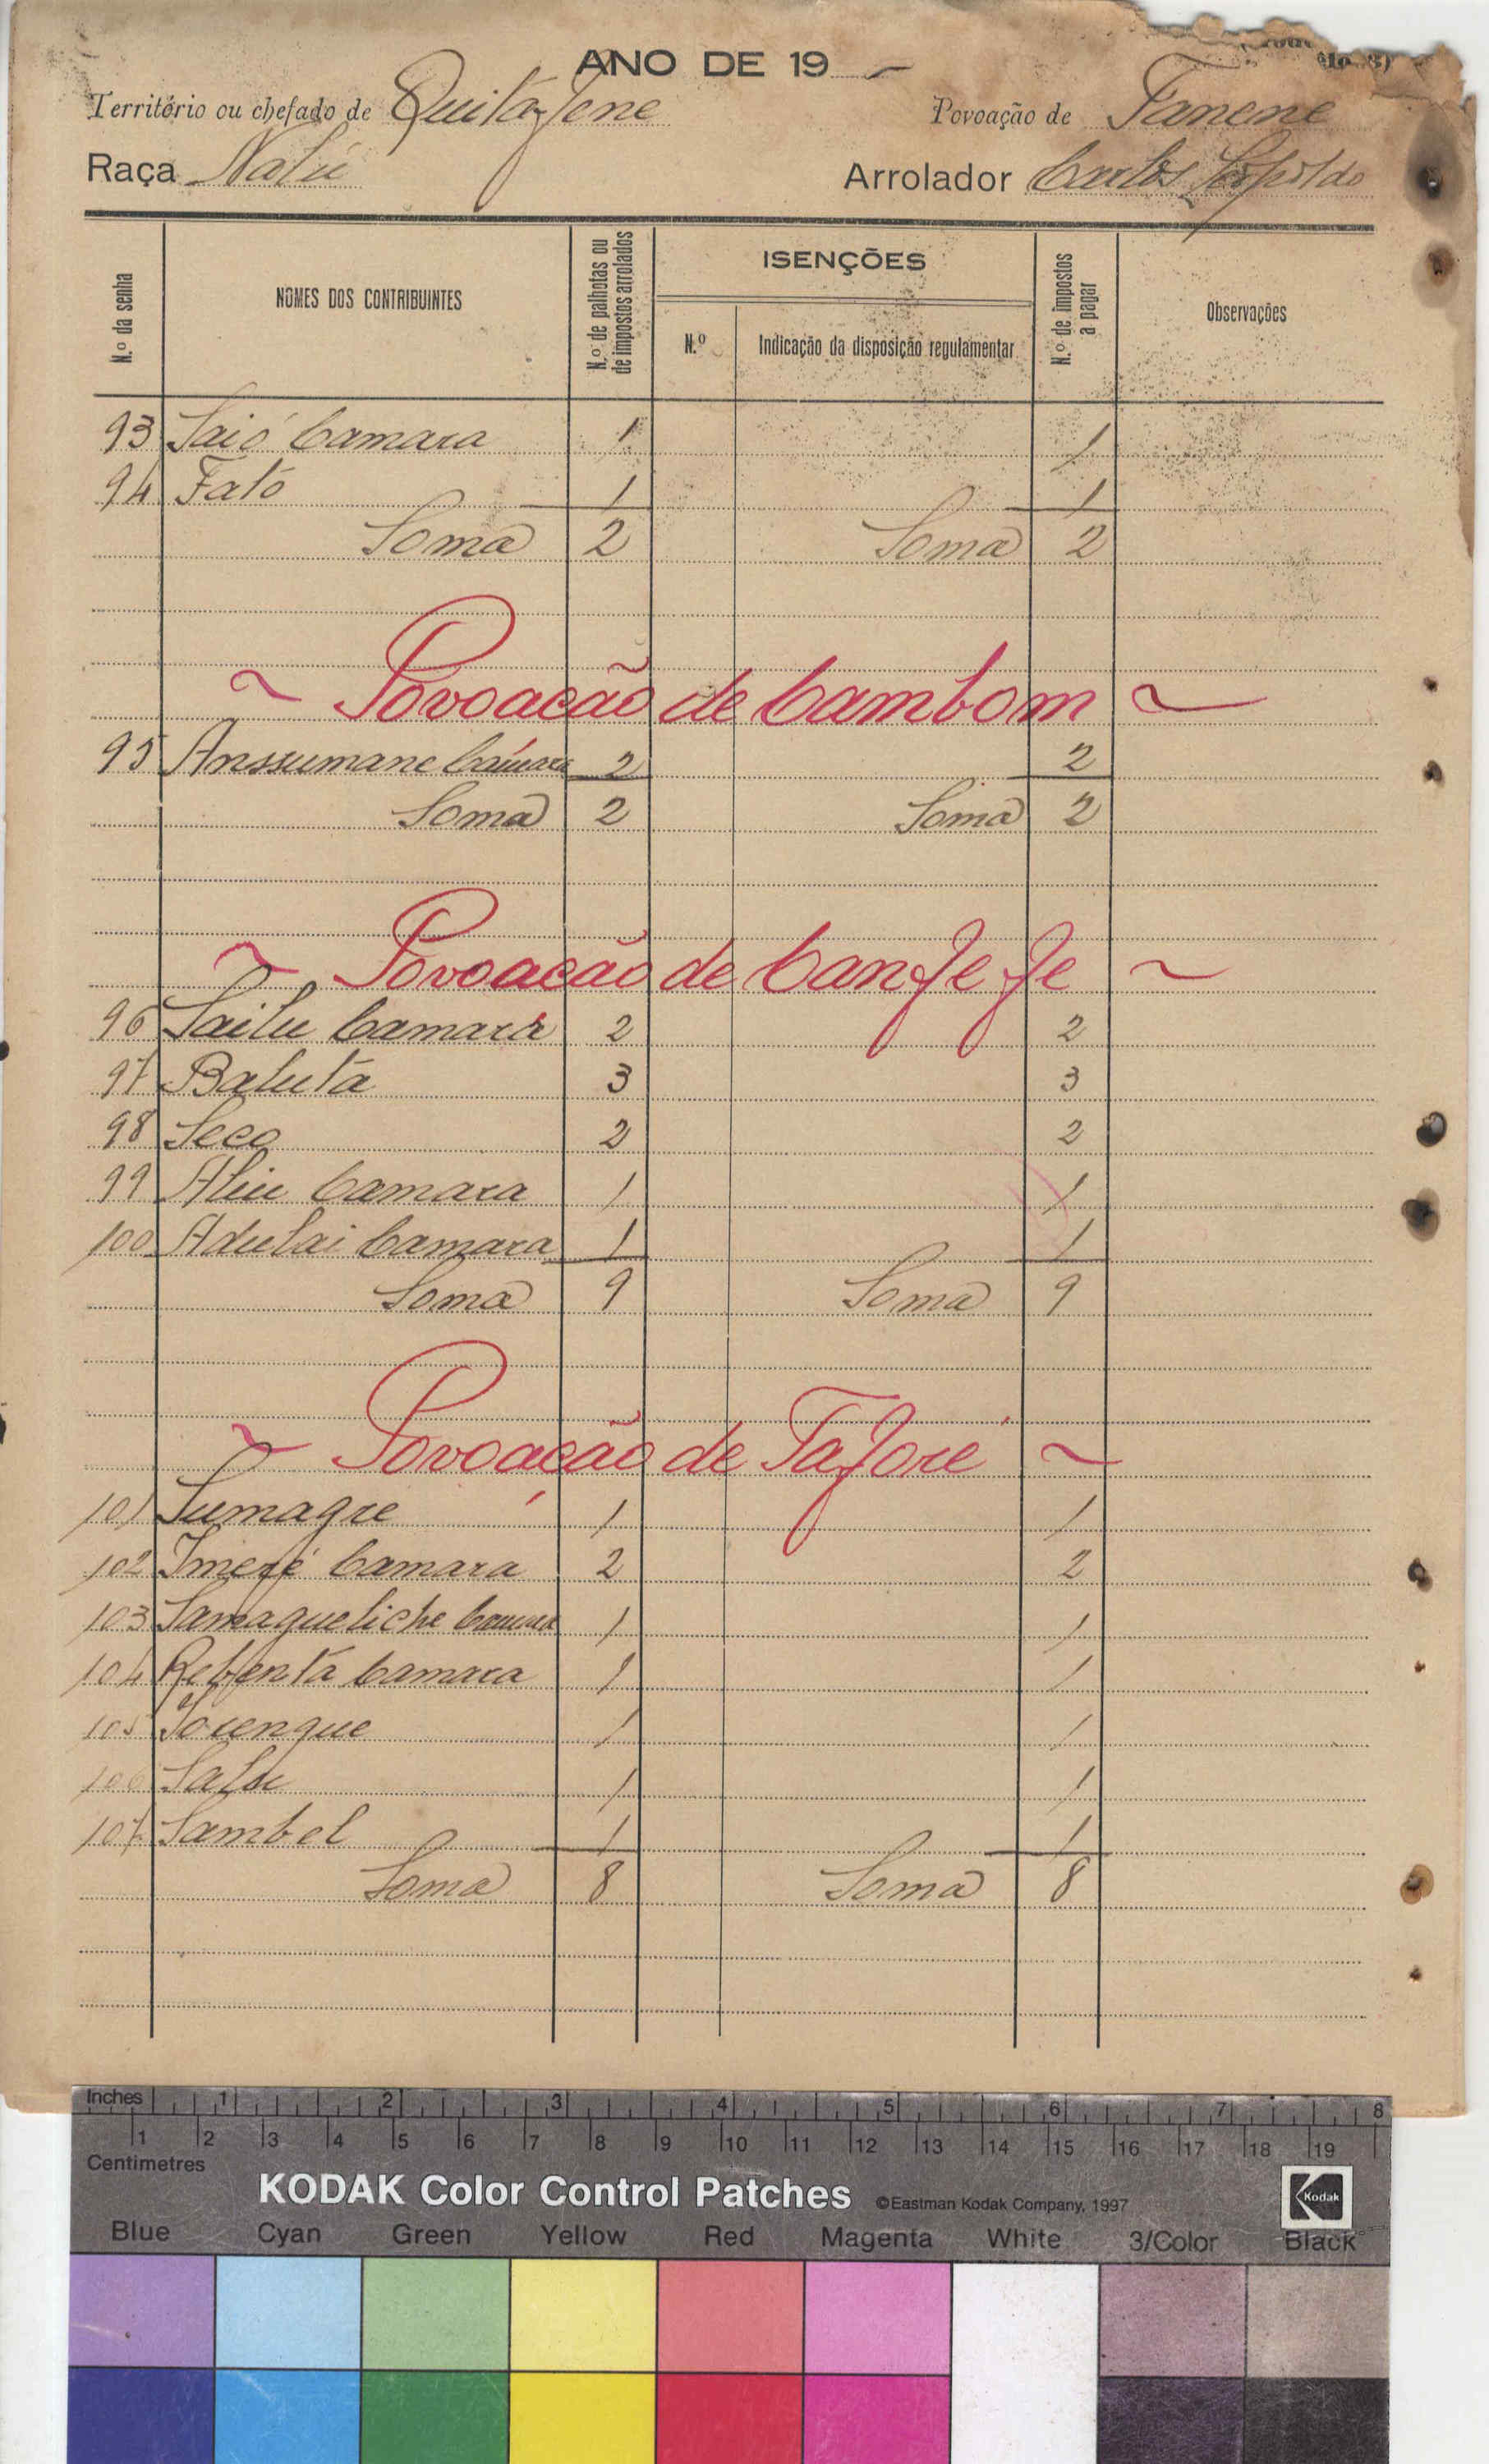 ANO DE 19 -
Território ou chefado de Quitafene Povoação de Fanene
Raça Nalú Arrolador Carlos Leopoldo
N.º da senha NOMES DOS CONTRIBUINTES N.º de palhotas ou de impostos arrolados ISENÇÕES N.º de impostos a pagar Observações
N.º Indicação da disposição regulamentar
93 Saió Camara 1 1
94 Fató 1 1
Soma 2 Soma 2
~ Povoação de Cambom ~
95 Anssumane Camara 2 2
Soma 2 Soma 2
~ Povoação de Canfefe ~
96 Sailu Camara 2 2
97 Baluta 3 3
98 Seco 2 2
99 Aliu Camara 1 1
100 Adulai Camara 1 1
Soma 9 Soma 9
~ Povoação de Tafore ~
101 Sumagre 1 1
102 Camara 2 2
103 Camara 1 1
104 Camara 1 1
105 1 1
106 1 1
107 Sambel 1 1
Soma 8 Soma 8
Inches 1 2 3 4 5 6 7 8
1 2 3 4 5 6 7 8 9 10 11 12 13 14 15 16 17 18 19
Centimetres
KODAK Color Control Patches ©Eastman Kodak Company, 1997 Kodak
Blue Cyan Green Yellow Red Magenta White 3/Color Black